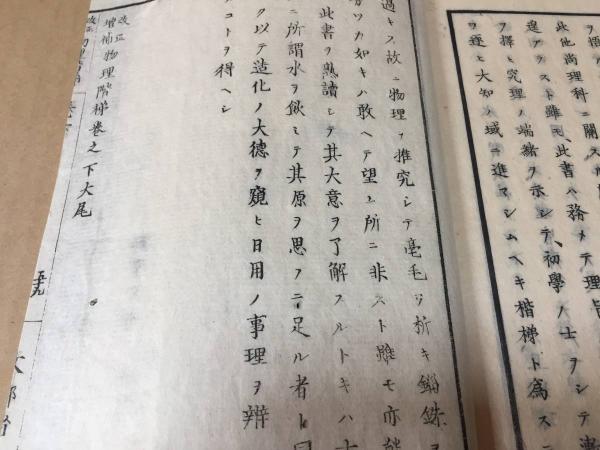 ヲ悟
此他尚理科ニ關スル
遑アラスト雖モ此書ハ務メテ理旨
ヲ擇ヒ究理ノ端緒ヲ示シテ初學ノ士ヲシテ漸
ヲ逐ヒ大知ノ域ニ進マシムヘキ楷梯ト爲スニ
過キス故ニ物理ヲ推究シテ毫毛ヲ析キ錙銖ヲ
分ツカ如キハ敢ヘテ望ム所ニ非スト雖モ亦能
此書ヲ熟讀シテ其大意ヲ了解スルトキハ古
ニ所謂水ヲ飲ミテ其原ヲ思フニ足ル者ト曰
ク以テ造化ノ大德ヲ窺ヒ日用ノ事理ヲ辨
コトヲ得ヘシ
改正
增補物理階梯卷之下大尾